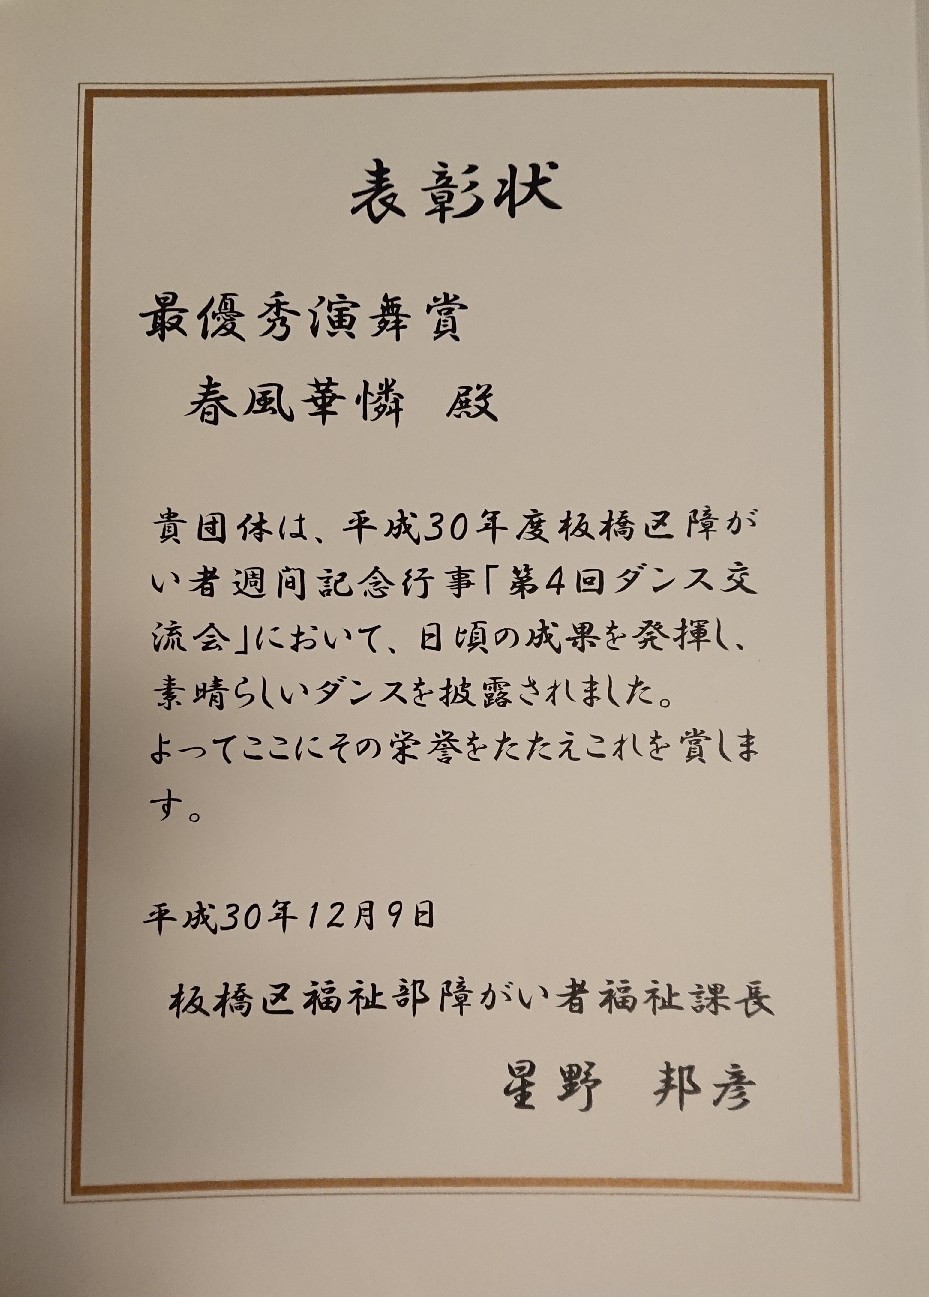 表彰状
最優秀演舞賞
春風華憐 殿
貴団体は、平成30年度板橋区障が
い者週間記念行事「第4回ダンス交
流会」において、日頃の成果を発揮し、
素晴らしいダンスを披露されました。
よってここにその栄誉をたたえこれを賞しま
す。
平成30年12月9日
板橋区福祉部障がい者福祉課長
星野 邦彦